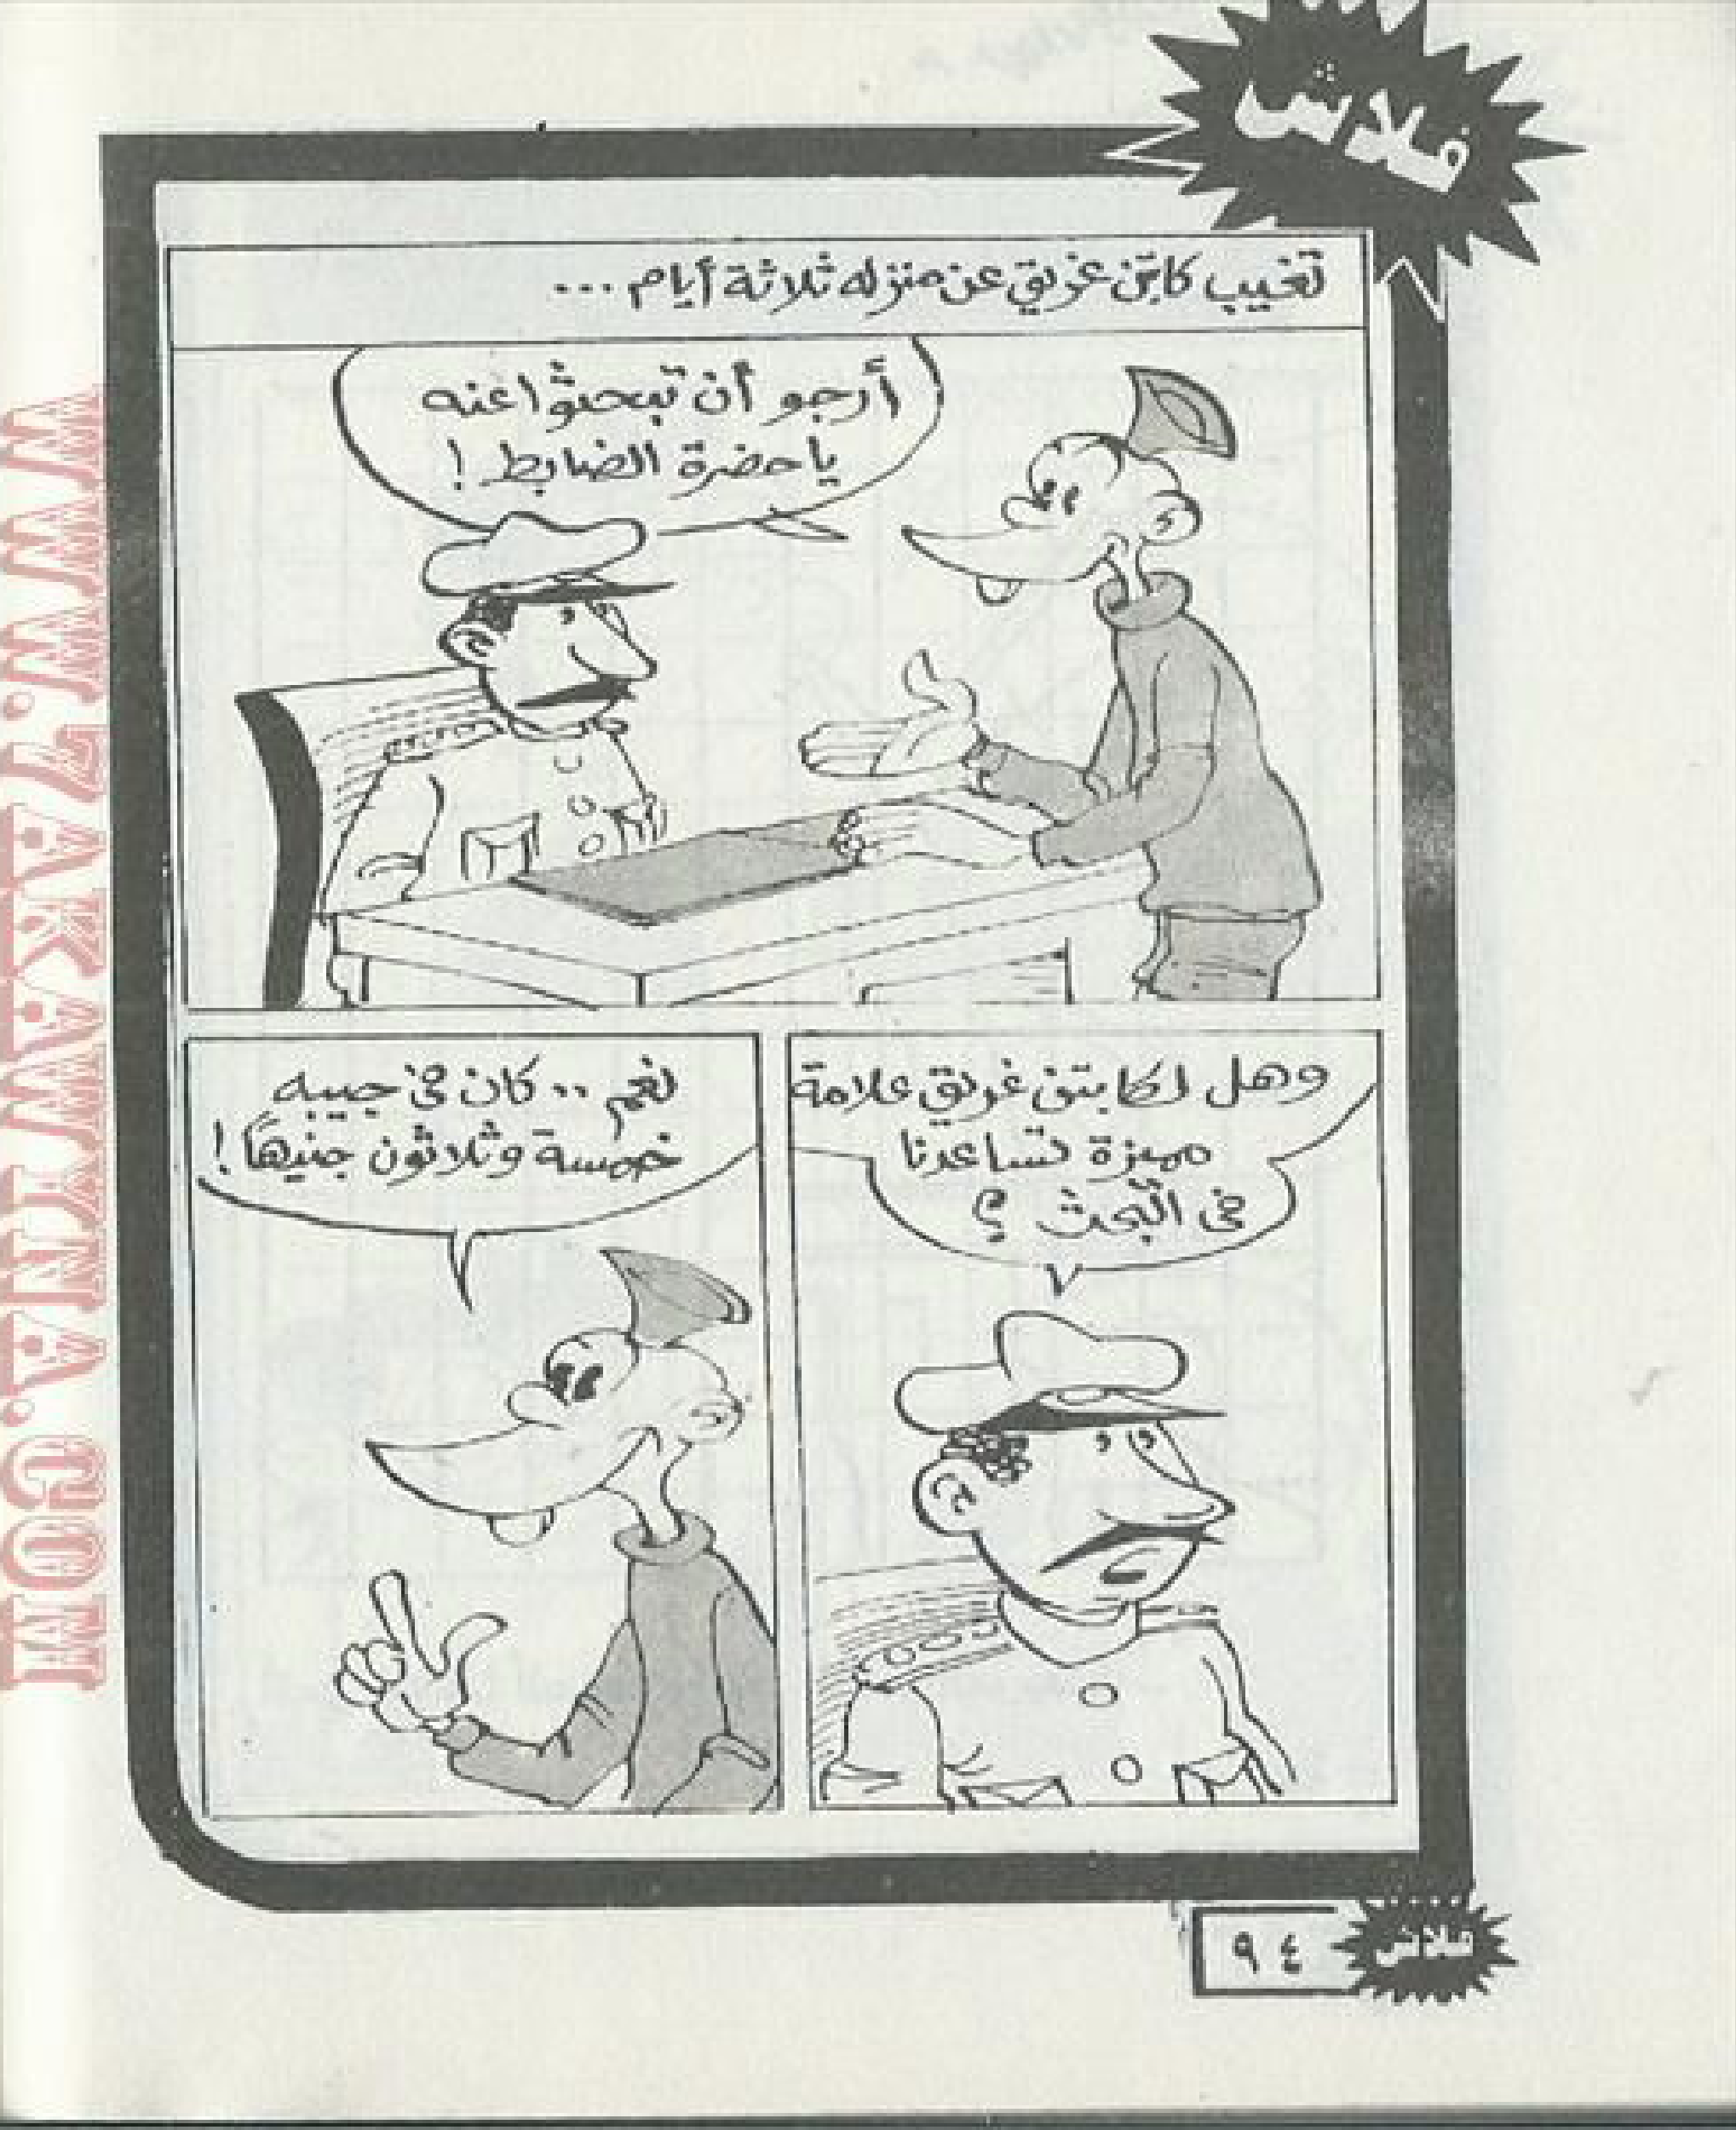 فلاش
تغيب كابتن غريق عن منزله ثلاثة أيام ...
أرجو أن تبحثوا عنه
يا حضرة الضابط !
وهل لكابتن غريق علامة
مميزة تساعدنا
فى البحث ؟
نعم .. كان فى جيبه
خمسة وثلاثون جنيهاً !
٩٤
فلاش
WWW.7AKAWITNA.COM